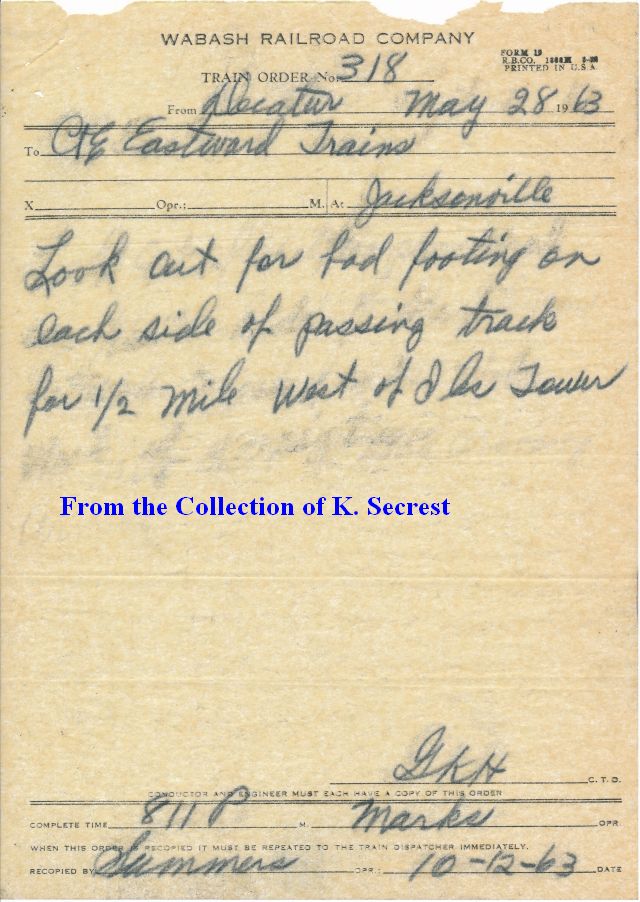 WABASH RAILROAD COMPANY
FORM 19
R.B.CO. 1800M 3-20
PRINTED IN U.S.A.
TRAIN ORDER No. 318
From Decatur May 28 1963
To C&E Eastward Trains
X Opr.: M. A: Jacksonville
Look out for bad footing on
each side of passing track
for 1/2 Mile West of Iles Tower
From the Collection of K. Secrest
GKH C.T.D.
CONDUCTOR AND ENGINEER MUST EACH HAVE A COPY OF THIS ORDER
COMPLETE TIME 811 P M. Marks OPR.
WHEN THIS ORDER IS RECOPIED IT MUST BE REPEATED TO THE TRAIN DISPATCHER IMMEDIATELY.
RECOPIED BY Summers OPR.: 10-12-63 DATE